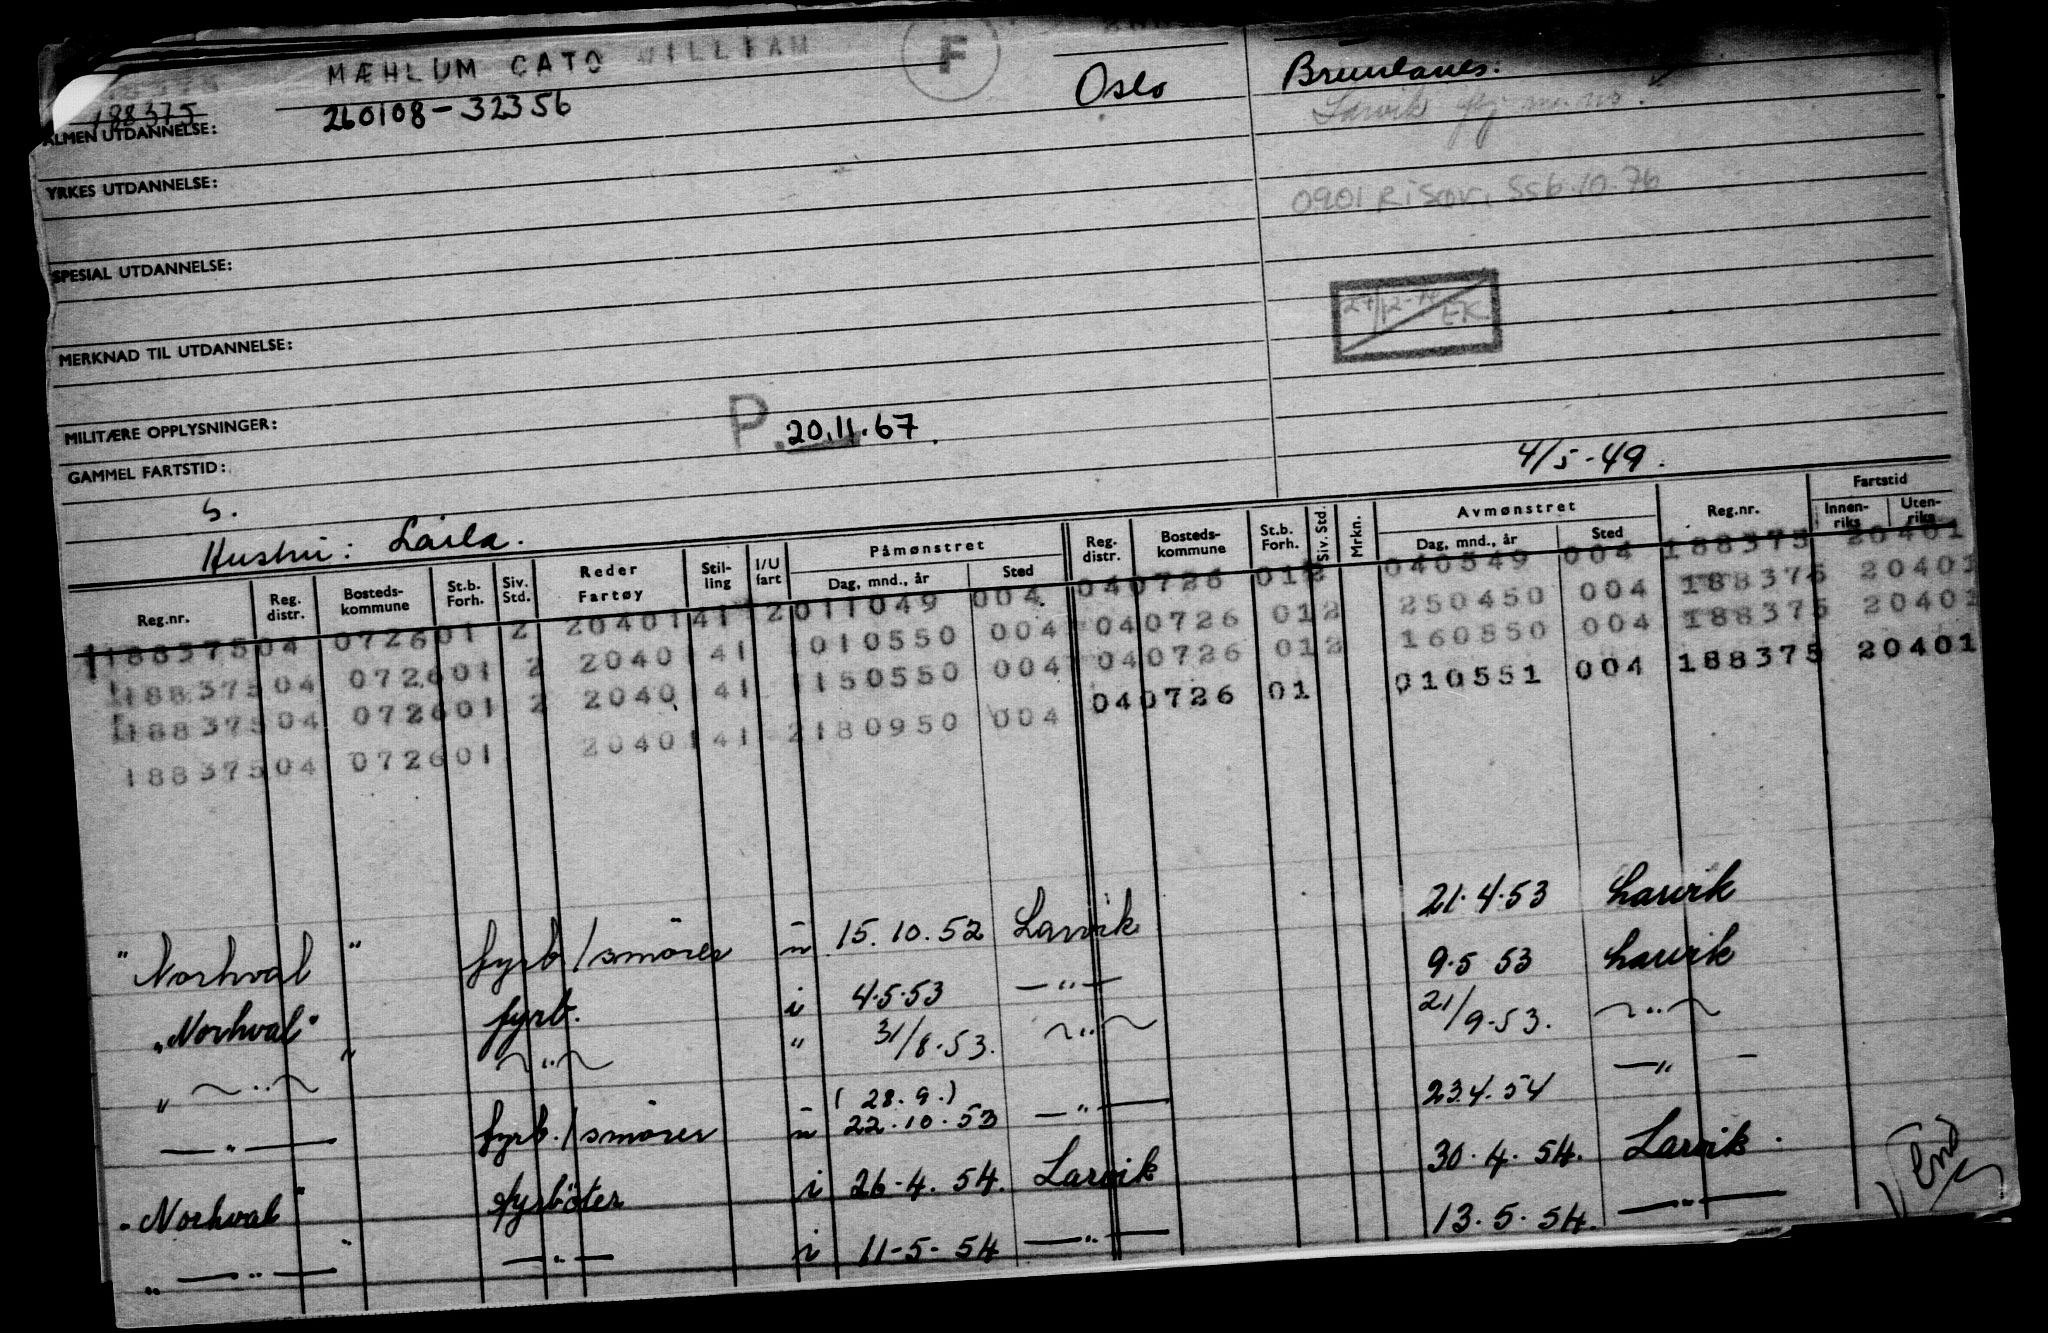 MÆHLUM CATO WILLIAM
F
Oslo
Brunlanes.
188375
260108-32356
Larvik
ALMEN UTDANNELSE:
YRKES UTDANNELSE:
0901 Risør, SSb.10.76
SPESIAL UTDANNELSE:
EK
MERKNAD TIL UTDANNELSE:
MILITÆRE OPPLYSNINGER:
P. 20.11.67.
GAMMEL FARTSTID:
4/5-49.
S.
Hustru: Laila.
Reg.nr. Reg. distr. Bosteds-kommune St.b. Forh. Siv. Std. Reder Fartøy Stil-ling I/U fart Påmønstret Dag, mnd., år Sted Reg. distr. Bosteds-kommune St.b. Forh. Siv. Std. Mrkn. Avmønstret Dag, mnd., år Sted Reg.nr. Fartstid Innen-riks Uten-riks
188375 04 0726 01 2 20401 41 2 011049 004 04 0726 01 2 040549 004 188375 20401
188375 04 0726 01 2 20401 41 1 010550 004 04 0726 01 2 250450 004 188375 20401
188375 04 0726 01 2 20401 41 1 150550 004 04 0726 01 2 160550 004 188375 20401
188375 04 0726 01 20401 41 2 180950 004 04 0726 01 010551 004 188375 20401
"Norhval" fyrb/smører u 15.10.52 Larvik 21.4.53 Larvik
"Norhval" fyrb. i 4.5.53 —"— 9.5 53 Larvik
" ~"~ " ~"~ " 31/8.53. ~"~ 21/9.53. ~"~
(28.9.)
—"— fyrb./smører u 22.10.53 —"— 23.4.54 —"—
"Norhval" fyrbøter i 26-4.54. Larvik 30.4.54. Larvik.
" —"— " —"— i 11-5-54 —"— 13.5.54. —"—